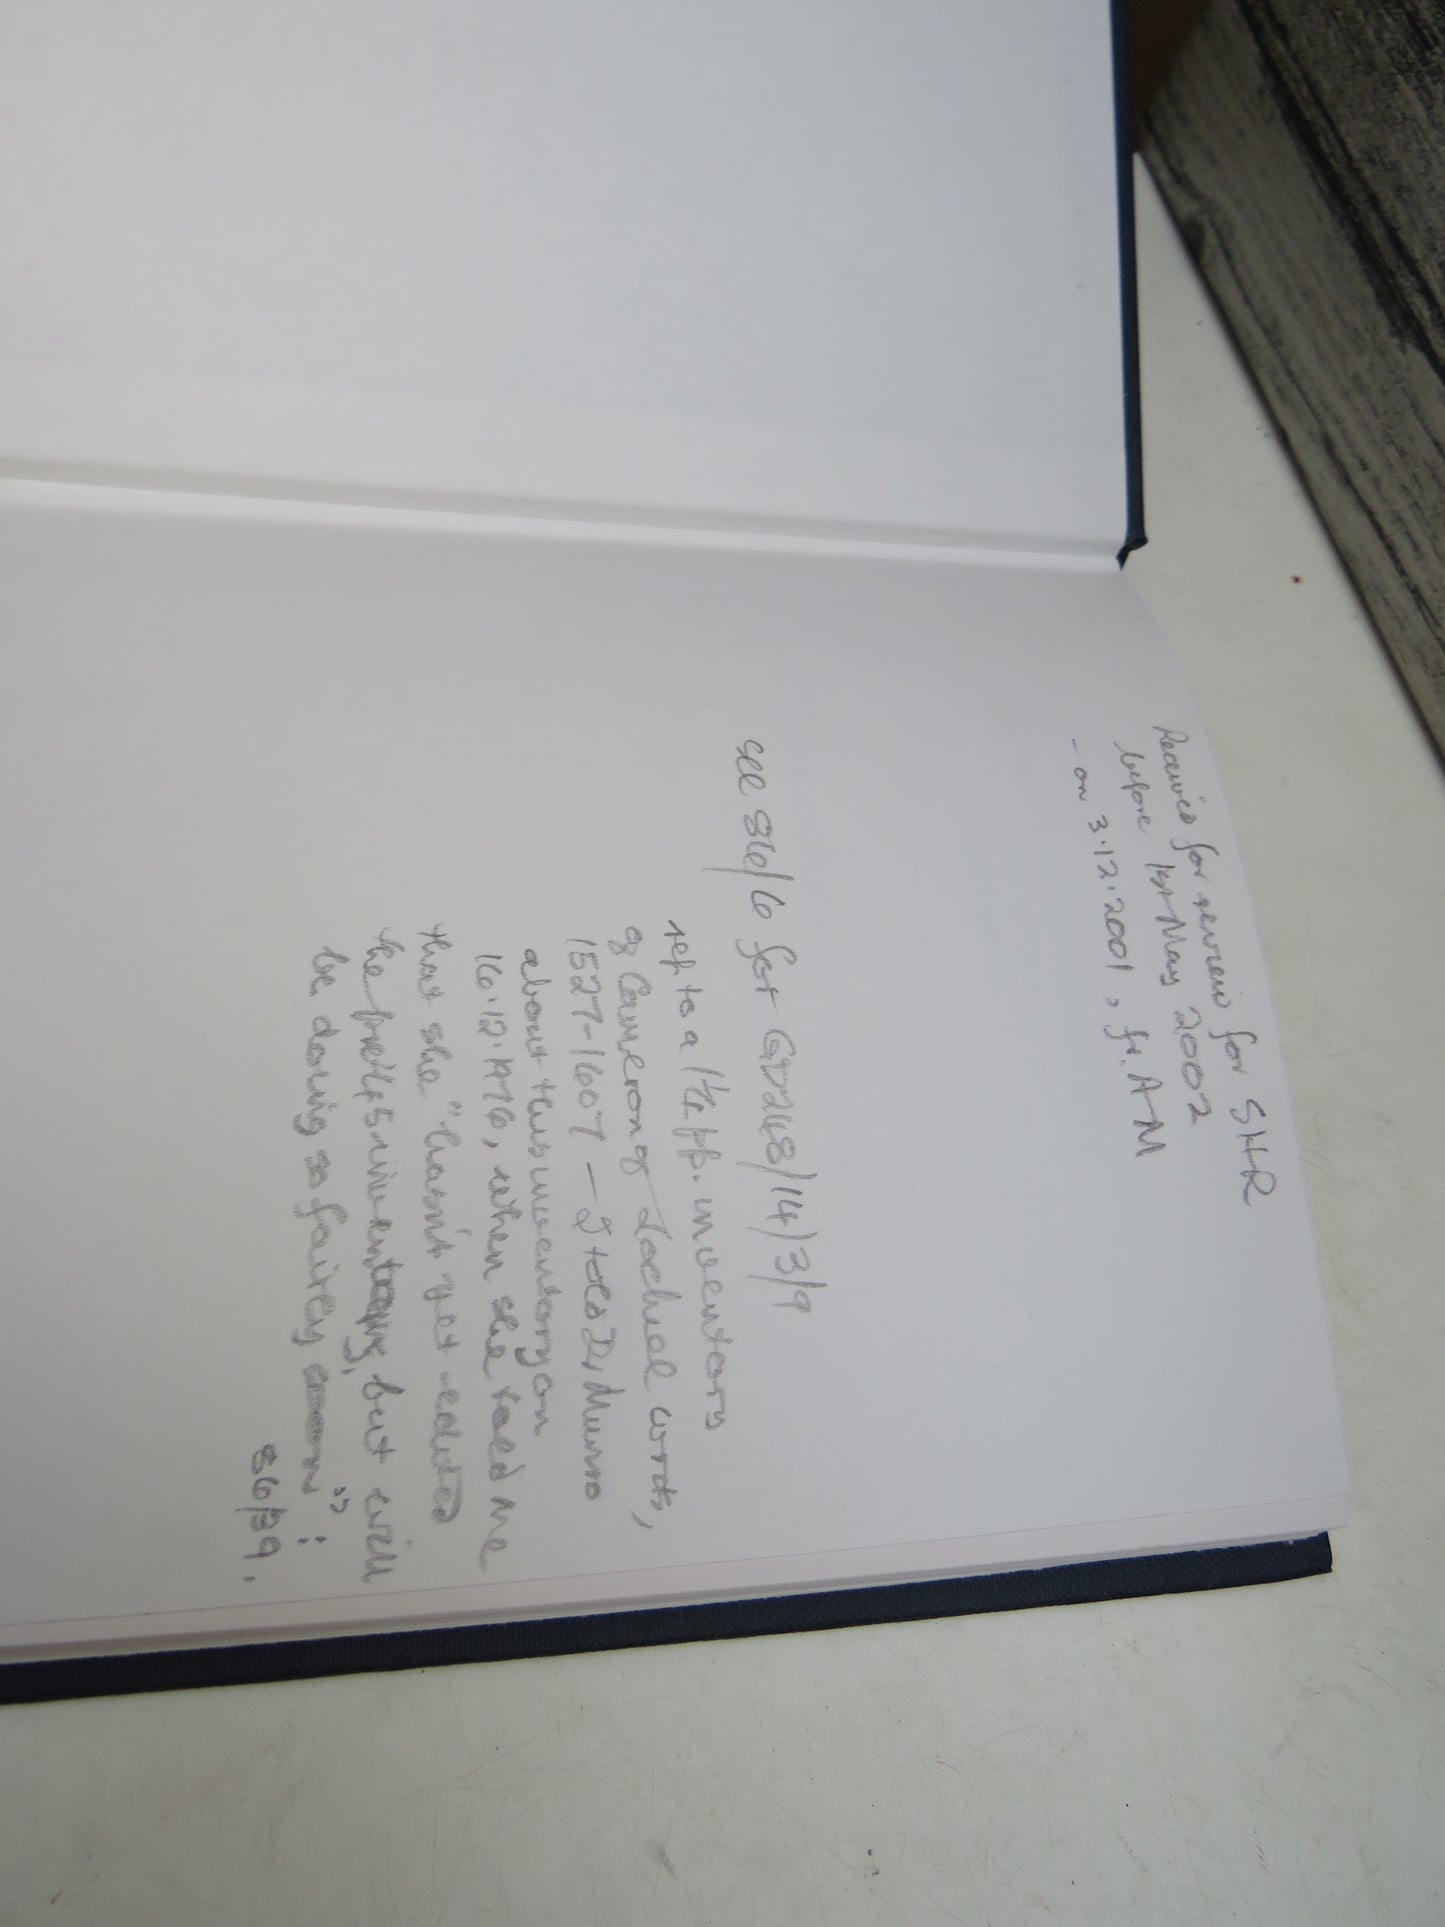 Received for review for SHR
before 1st May 2002
- on 3.12.2001, fr. AM
see S6/6 for GD248/14/3/9
ref to a 1½ pp. inventory
of Cameron of Lochiel writs,
1527-1607 - I told D. Munro
about this inventory on
16.12.1976, when she told me
that she "hasn't yet edited
the pre 1745 inventory, but will
be doing so fairly soon":
S6/39.